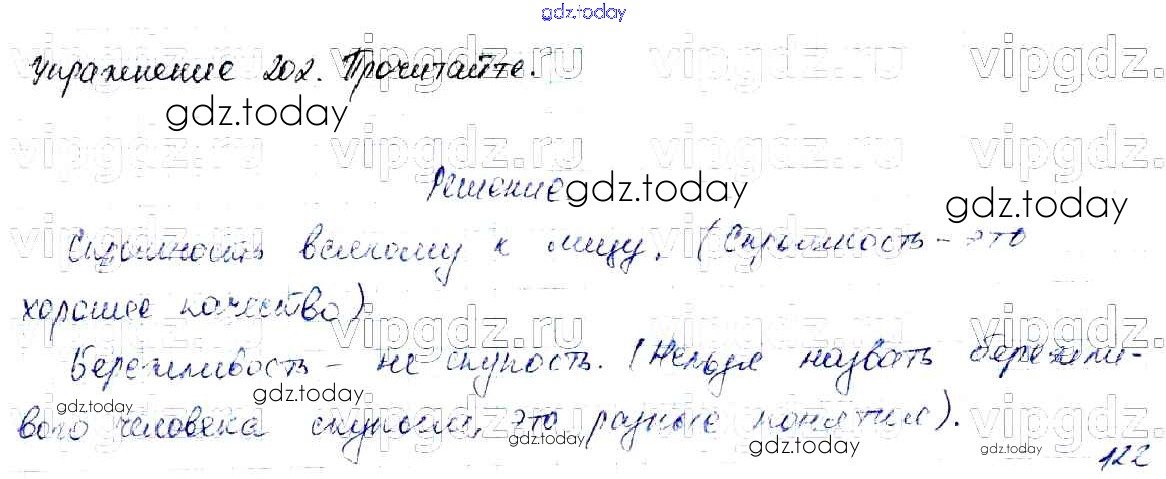 gdz.today
Упражнение 202. Прочитайте.
gdz.today
Решение gdz.today
gdz.today
Скромность всякому к лицу. (Скромность - это
хорошее качество)
Бережливость - не скупость. (Нельзя назвать бережли-
gdz.today
вого человека скупым, это разные понятия).
gdz.today
gdz.today
122
vipgdz.ru vipgdz.ru vipgdz.ru vipgdz.ru